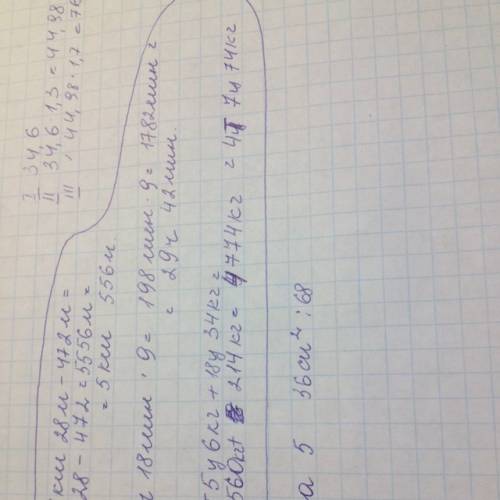 I 34,6
II 34,6 · 1,3 = 44,98
III 44,98 · 1,7 = 76
км 28м - 472м =
28 - 472 = 5556м =
= 5 км 556м.
18мин · 9 = 198мин · 9 = 1782мин =
= 29ч 42мин.
5ц 6кг + 18ц 34кг =
560кг + 214кг = 4774кг = 4т 7ц 74кг
а 5 36см² : 68